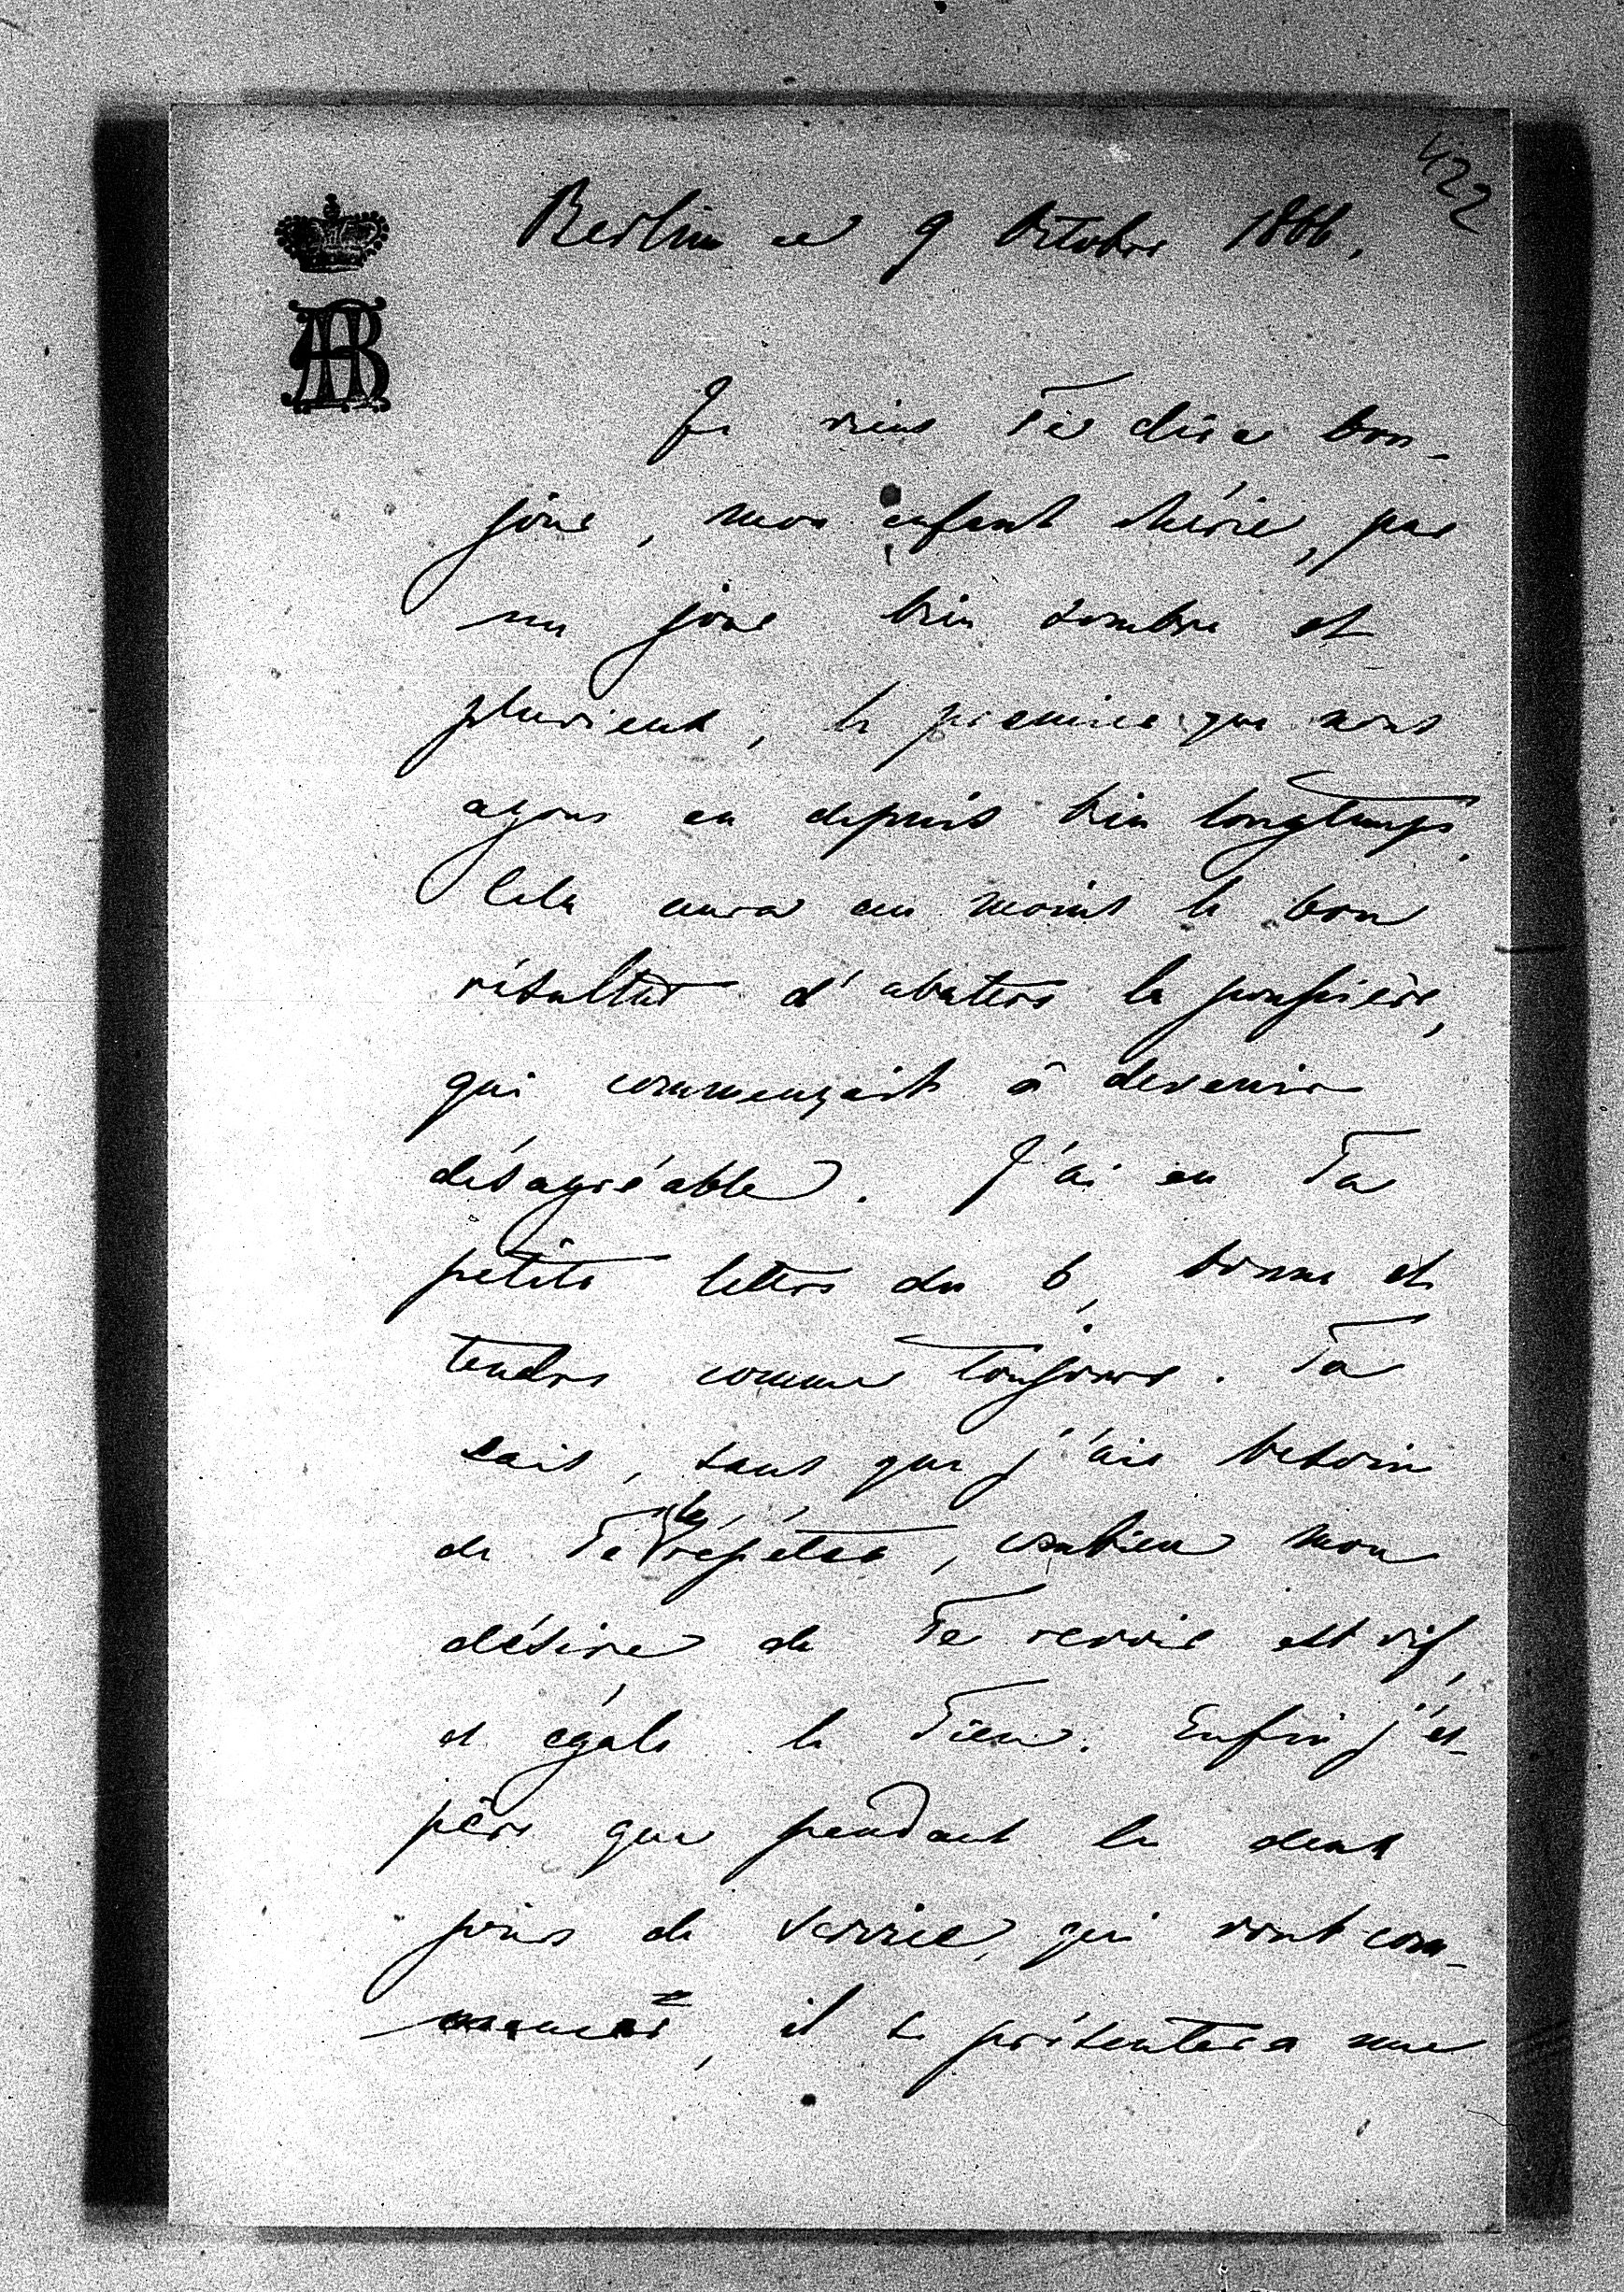 422
Berlin ce 9 Octobre 1866.
Je viens Te dire bon-
jour, mon enfant chérie, par
un jour bien sombre et
pluvieux, le premier que nous
ayons eu depuis bien longtemps.
Cela aura au moins le bon
résultat d'abattre la poussière,
qui commençait à devenir
désagréable. J'ai eu Ta
petite lettre du 6, bonne et
tendre comme toujours. Tu
sais, sans que j'aie besoin
de Te le répéter, combien mon
désire de Te revoir est vif,
et égale le Tien. Enfin j'es-
père que pendant les deux
jours de
qui vont com-
mencer, il se présentera une